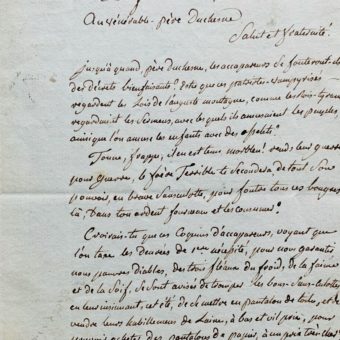 Au vénérable père Duchesne
Salut et fraternité.
Jusqu'à quand, père duchesne, les accapareurs se foutront-ils
des décrets bienfaisants? Est-ce que ces patriotes-vampyrisés
regardent les Lois de l'auguste montagne, comme les Rois-tyrans
regardaient les Sermens, avec les quels ils amusaient les peuples,
ainsi que l'on amuse les enfants avec des osselets!
Tonne, frappe, il en est tems morbleu! rends leur guerre
pour guerre, le foére Terrible te Secondera, de tout Son
pouvoir, en brave Sansculotte, pour foutre tous ces bougres
là, Dans ton ardent fourneau et les consumer!
Croirais-tu que ces Coquins d'accapareurs, voyant que
l'on taxe les denrées de 1ere nécessité, pour nous garantir
nous pauvres diables, des trois fléaux du froid, de la faim
et de la Soif, Se Sont avisés de tromper les bons Sans-culottes
en leur insinuant, cet été, de Se mettre en pantalon de toile, et de
vendre leurs habillemens de Laine, à bas et vil prix, pour
des pantalons de à un prix très haut